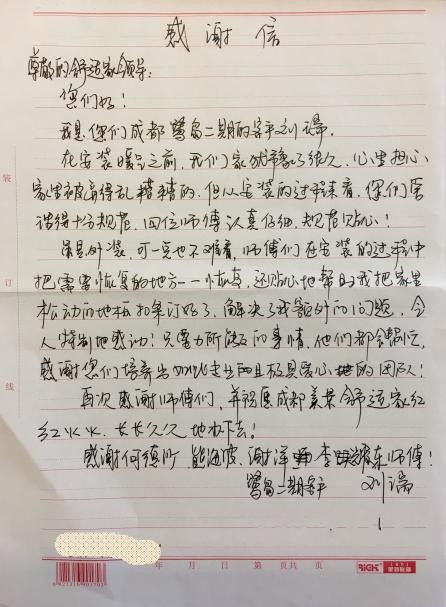 感谢信
尊敬的舒适家领导:
您们好!
我是您们成都鹭岛二期的客户刘瑞。
在安装暖气之前,我们家犹豫了很久,心里担心
家里被弄得乱糟糟的,但从安装的过程来看,你们
得十分规范,四位师傅认真仔细,规范贴心!
虽是外装,可一点也不难看,师傅们在安装的过程中
把需要恢复的地方一一恢复,还贴心地帮助我把家里
松动的地板扣条订好了,解决了我额外的问题,令
人特别地感动!只要力所能及的事情,他们都会帮忙,
感谢您们培养出如此专业而且极具责心地的团队!
再次感谢师傅们,并祝愿成都美景舒适家红
红火火、长长久久地办下去!
感谢何德 熊 波、谢洋 李 东师傅!
鹭岛二期客户 刘瑞
装
订
线
6921316901703
年 月 日 第 页共 页